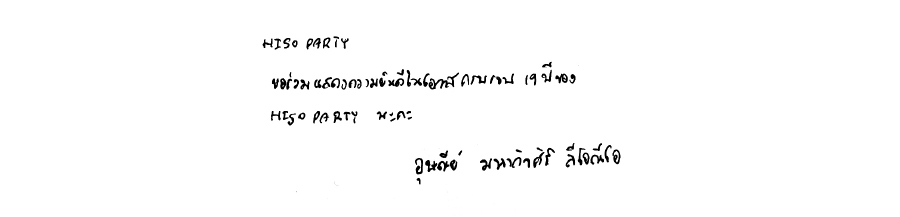 HISO PARTY
ขอร่วมแสดงความยินดีในโอกาสครบรอบ 19 ปีของ
HISO PARTY นะคะ
อุษณีย์ มหากิจศิริ ลีโอณีโอ